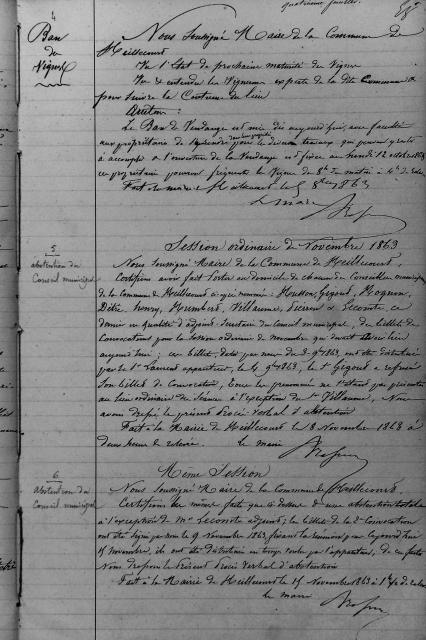 quatrième feuillet.
4
Ban
de
Vignes
Nous Soussigné Maire de la Commune de
Heillecourt
Vu l'État de prochaine maturité du Vigne
Vu & entendu les Vignerons experts de la dte Commune &
pour suivre la Coutume du lieu
Arrêtons :
Le Ban de Vendange est mis dès aujourd'hui, avec faculté
aux propriétaires de pour les divers travaux qui peuvent y rester
à accomplir & l'ouverture de la Vendange est fixée au lundi 12 octobre 1863
les propriétaires pouvant fréquenter les Vignes de 8h du matin à 4h
Fait en mairie à Heillecourt le 8bre 1863
Le maire
5
abstention du
Conseil municipal
Session ordinaire de Novembre 1863
Nous Soussigné Maire de la Commune de Heillecourt,
Certifions avoir fait porter au domicile de chacun des Conseillers municipaux
de la commune de Heillecourt ci-après nommés : Husson, Gigout, Noquin,
Henry, Humbert, Villaume, & Lecomte ce
dernier en qualité d'adjoint Secrétaire du Conseil municipal, des billets de
Convocations pour la Session ordinaire de novembre qui devait avoir lieu
aujourd'hui ; ces billets datés par nous du 3 9bre 1863 ont été distribués
par le Sr Laurent appariteur, le 4 9bre 1863, le Sr Gigout a refusé
son billet de Convocation, tous les prénommés ne s'étant pas présentés
au lieu ordinaire des Séances à l'exception du Sr Villaume, Nous
avons dressé le présent Procès Verbal d'abstention
Fait à la Mairie de Heillecourt le 8 Novembre 1863 à
deux heures de relevée. Le maire
6
abstention du
Conseil municipal
Même Session
Nous Soussigné Maire de la Commune de Heillecourt,
Certifions le même fait que ci dessus d'une abstention totale
à l'exception de Mr Lecomte adjoint ; les billets de la 2e Convocation
ont été signés par nous le 9 novembre 1863, fixant la réunion à aujourd'hui
15 novembre, ils ont été distribués en temps voulu par l'appariteur, de ces faits
Nous dressons le Présent Procès Verbal d'abstention
Fait à la Mairie de Heillecourt le 15 Novembre 1863 à
Le maire